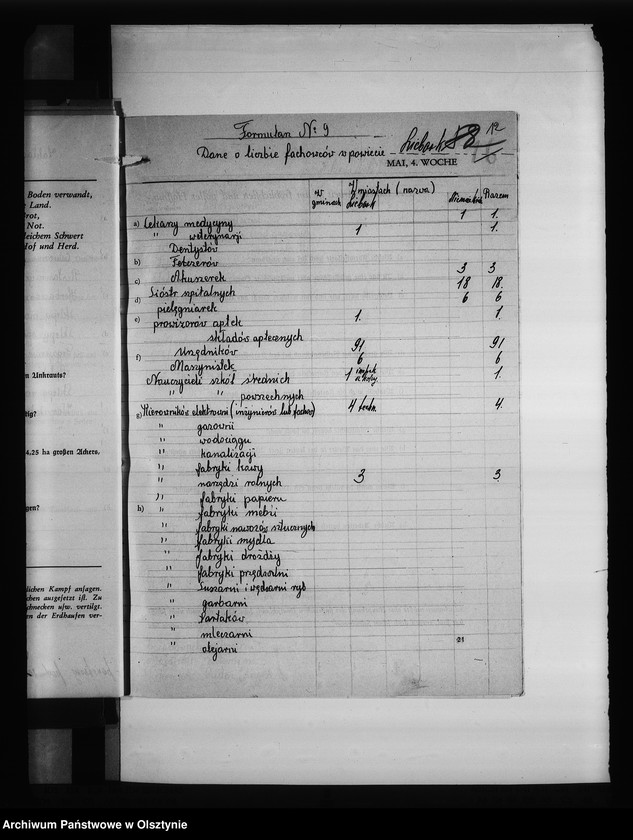 Boden verwandt,
Land.
Brot,
Not.
gleichem Schwert
Hof und Herd.
Unkraute?
4,25 ha großen Ackers.
lichen Kampf ansagen.
chen ausgesetzt ist. Zu
chnecken usw. vertilgt.
en der Erdhaufen ver-
Formularz Nr 9
12
Dane o liczbie fachowców w powiecie Lidzbark 58
MAI, 4. WOCHE
w gminach Z miastach (nazwa) Lidzbark Niemców Razem
a) Lekarzy medycyny 1 1.
" weterynarji 1 1.
Dentystów
b) Felczerów
c) Akuszerek 3 3
d) Sióstr szpitalnych 18 18.
pielęgniarek 6 6
e) prowizorów aptek 1. 1.
składów aptecznych
f) Urzędników 91 91
Maszynistek 6 6
Nauczycieli szkół średnich 1 1.
" " powszechnych
g) Kierowników elektrowni (inżynierów lub fachow) 4 techn. 4.
" gazowni
" wodociągu
" kanalizacji
" fabryki kawy
" narzędzi rolnych 3 3
" fabryki papieru
h) " fabryki mebli
" fabryki nawozów sztucznych
" fabryki mydła
" fabryki drożdży
" fabryki przędzalni
" suszarni i wędzarni ryb
" garbarni
" tartaków
" mleczarni
21
" olejarni
Archiwum Państwowe w Olsztynie